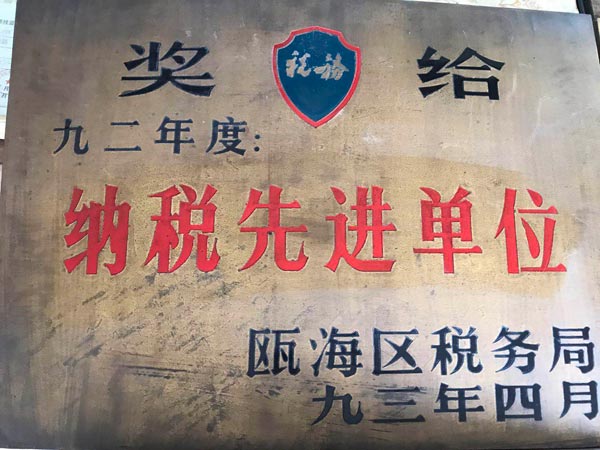 奖 税务 给
九二年度:
纳税先进单位
瓯海区税务局
九三年四月